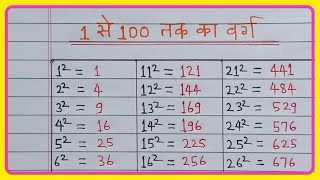 1 से 100 तक का वर्ग
1² = 1 11² = 121 21² = 441
2² = 4 12² = 144 22² = 484
3² = 9 13² = 169 23² = 529
4² = 16 14² = 196 24² = 576
5² = 25 15² = 225 25² = 625
6² = 36 16² = 256 26² = 676